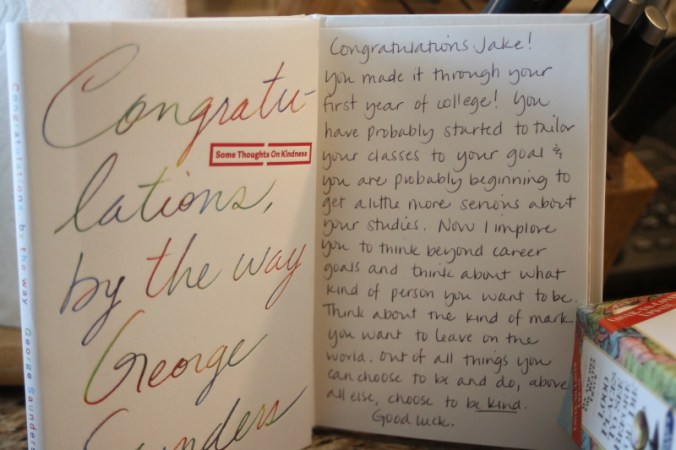 Congratulations by the way George Saunders
Congratu-
Some Thoughts On Kindness
lations,
by the way
George
Saunders
Congratulations Jake!
You made it through your
first year of college! You
have probably started to tailor
your classes to your goal &
you are probably beginning to
get a little more serious about
your studies. Now I implore
you to think beyond career
goals and think about what
kind of person you want to be.
Think about the kind of mark
you want to leave on the
world. Out of all things you
can choose to be and do, above
all else, choose to be kind.
Good luck.